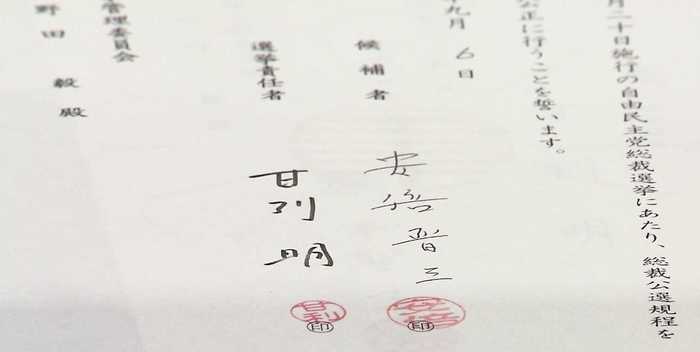 月二十日施行の自由民主党総裁選挙にあたり、総裁公選規程を
公正に行うことを誓います。
九月 6日
候補者 安倍晋三 印
安倍
選挙責任者 甘利明 印
甘利
管理委員会
野田毅殿